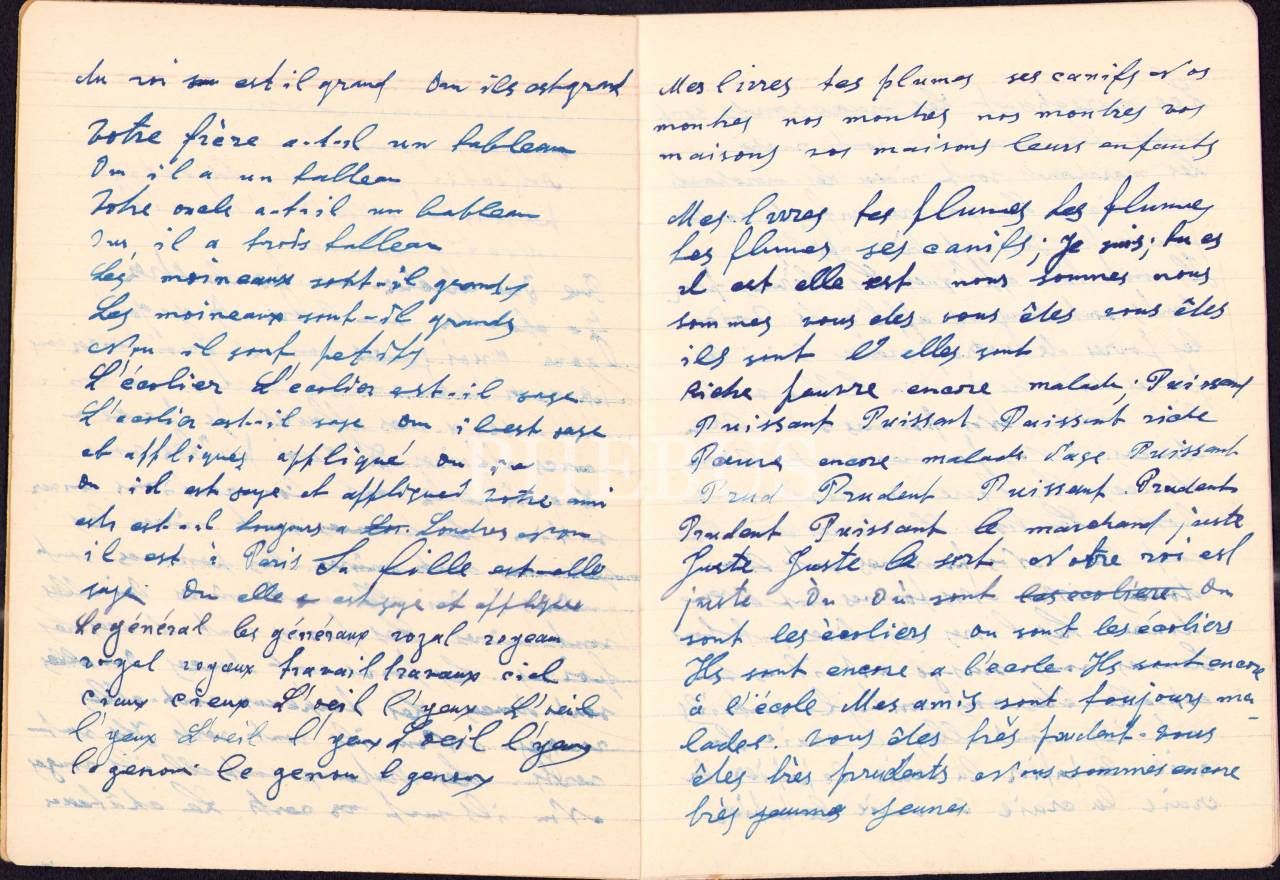 du roi est il grand Oui il est grand
Votre frère a-t-il un tableau
Oui il a un tableau
Votre oncle a-t-il un tableau
Oui il a trois tableau
Les moineaux sont-il grands
Les moineaux sont-il grands
Non il sont petits
L'écolier L'écolier est-il sage
L'écolier est-il sage Oui il est sage
et appliqués appliqué Oui
il est sage et appliqué votre ami
est est-il toujours a Londres Non
il est à Paris La fille est-elle
sage Oui elle est sage et applique
Le général les généraux royal royeau
royal royaux travail travaux ciel
ciaux cieux L'oeil l'yeux L'oeil
l'yeux L'oeil l'yeux L'oeil l'yeux
le genou le genou l genoux
Mes livres tes plumes ses canifs Nos
montres nos montres nos montres vos
maisons vos maisons leurs enfants
Mes livres tes plumes tes plumes
tes plumes ses canifs; Je suis; tu es
il est elle est nous sommes nous
sommes vous êtes vous êtes
ils sont elles sont
Riche pauvre encore malade; Puissant
Puissant Puissant Puissant riche
Pauvre encore malade sage Puissant
Prud Prudent Puissant Prudent
Prudent Puissant le marchand juste
Juste Juste le sort Notre roi est
juste Où Où sont les ecoliere Ou
sont les écoliers ou sont les écoliers
Ils sont encore a l'école. Ils sont encore
à l'école Mes amis sont toujours ma-
lades. Vous êtes très prudent. Vous
êtes très prudents Nous sommes encore
très jeunes
PHEBUS